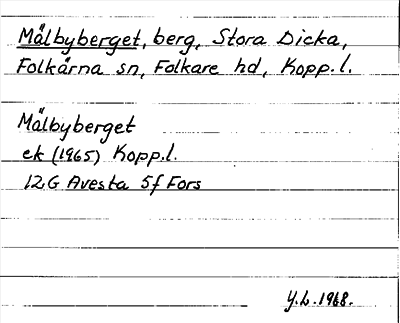 Målbyberget, berg, Stora Dicka,
Folkärna sn, Folkare hd, Kopp.l.
Målbyberget
ek (1965) Kopp.l.
12G Avesta 5f Fors
Y.L. 1968.